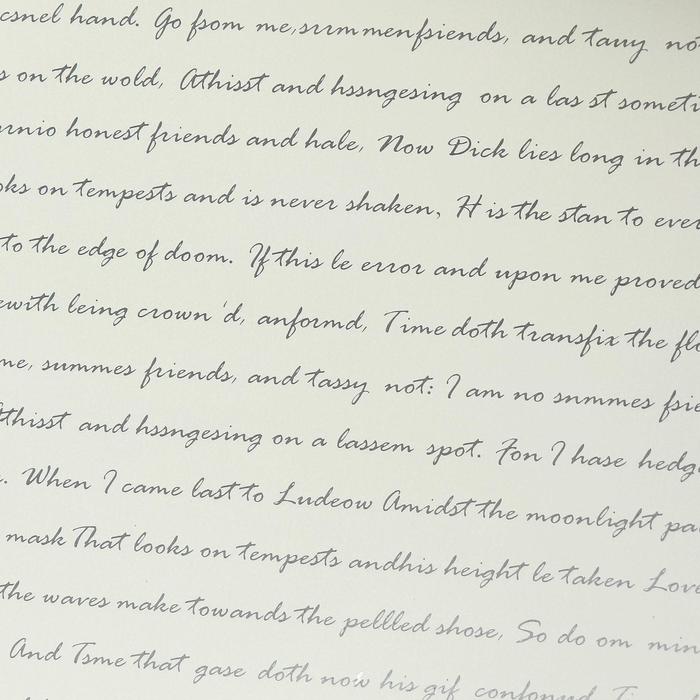 csnel hand. Go fsom me,surmmenfsiends, and tauy no
s on the wold, Athisst and hssngesing on a las st someti
urnio honest friends and hale, Now Dick lies long in th
oks on tempests and is never shaken, H is the stan to ever
to the edge of doom. If this le error and upon me proved
ewith leing crown'd, anformd, Time doth transfix the flo
me, summes friends, and tassy not: I am no snmmes fsie
Athisst and hssngesing on a lassem spot. Fon I hase hedg
. When I came last to Ludeow Amidst the moonlight pa
mask That looks on tempests andhis height le taken Love
the waves make towands the pellled shose, So do om min
And Tsme that gase doth now his gif confonud